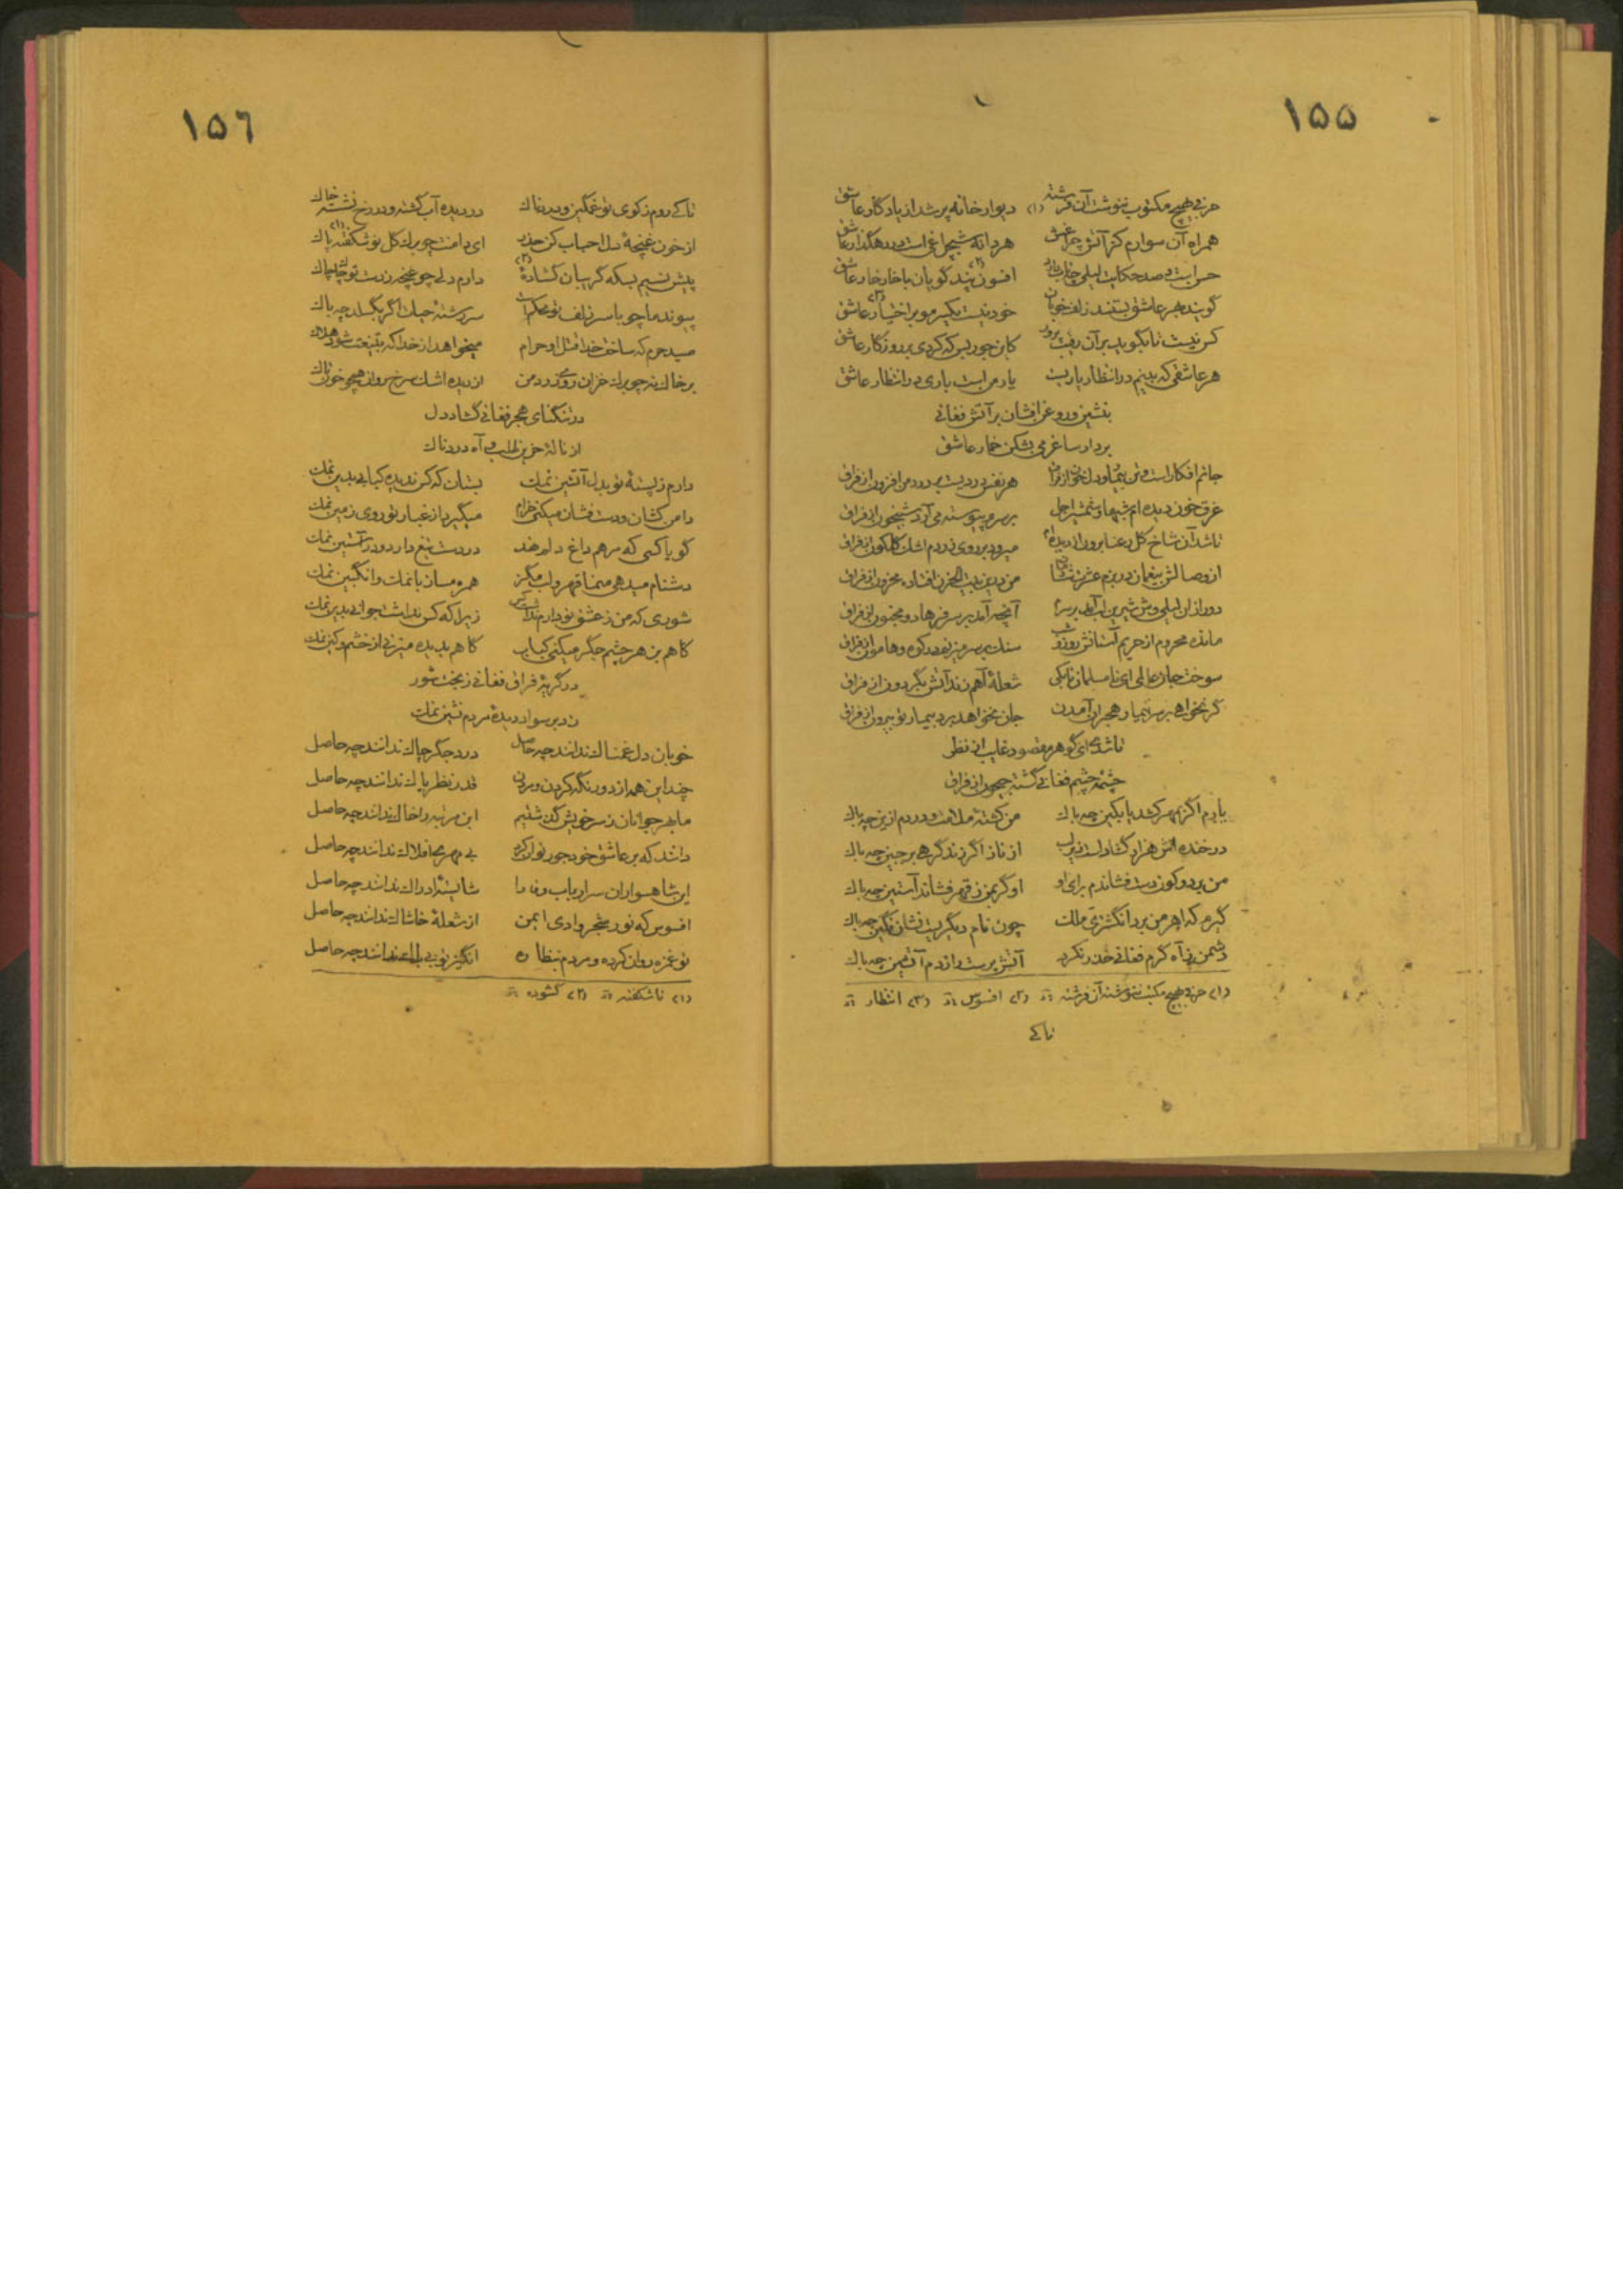 ١۵۵
حرفی بهیچ مکتوب ننوشت آن فرشته (١) دیوار خانه پر شد از یادگار عاشق
همراه آن سوارم کز آتش چراغش هر دانه شبچراغی است در رهگذار عاشق
حسن است و صد حکایت لیلی افسون پند گویان با خار خار عاشق
گویند هجر عاشق بستند زلف خوبان خود نیست یکسر مو بر اختیار عاشق
کس نیست تا بگوید بر آن کاین جور بس که کردی بر روزگار عاشق
هر عاشقی که بینم در انتظار یاریست یار من است باری در انتظار عاشق
بنشین و روغن افشان بر آتش فغانی
بردار ساغر می بشکن خمار عاشق
جانم افکار است و تن بیمار و دل خون از فراق هر نفس دردیست بر درد من افزون از فراق
غرق خون دیده ام شبها و شمشیر اجل بر سرم پیوسته می آرد شبیخون از فراق
تا شد آن شاخ گل رعنا برون از دیده ام میرود بر روی زردم اشک گلگون از فراق
از وصالش بیغمان در بزم عشرت من درین بیت الحزن افتاده محزون از فراق
دور از آن لیلی وش شیرین لب آمد بر سرم آنچه آمد بر سر فرهاد و مجنون از فراق
مانده محروم از حریم آستانش روز و شب سنگ بر سر میزنم در کوه و هامون از فراق
سوخت جان عالمی ای نامسلمان تا بکی شعلهٔ آهم زند آتش بگردون از فراق
گر نخواهی بر سر بیمار هجران آمدن جان نخواهد برد بیمار تو بیرون از فراق
تا شدی ای گوهر مقصود غایب از نظر
چشمهٔ چشم فغانی گشته جیحون از فراق
یارم اگر بمهر کشد یا بکین چه باک من کشتهٔ ملامت و دردم ازین چه باک
در خنده اش هزار گشاد است زیر لب از ناز اگر زند گرهی بر جبین چه باک
من بر دو کون دست فشاندم برای او او گر بمن ز قهر فشاند آستین چه باک
گیرم که اهرمن برد انگشتری ملک چون نام دیگریست نشان نگین چه باک
دشمن ز آه گرم فغانی حذر نکرد آتش پرست را ز دم آتشین چه باک
(١) حرفی بهیچ مکتب ننوشته آن فرشته (٢) افسوس (٣) انتظار
تا کی
١۵٦
تا کی روم ز کوی تو غمگین و دردناک در دیده آب گشته و در رخ نشسته خاک
از خون غنچهٔ دل احباب کن حذر ای دامنت چو برگ گل نو شکفته (١) پاک
پیش نسیم بسکه گریبان گشادهٔ (٢) دارم دلی چو غنچه ز دست تو چاک چاک
پیوند ما چو با سر زلف تو محکم است سر رشتهٔ حیات اگر بگسلد چه باک
صید حرم که ساخت خدا قتل او حرام میخواهد از خدا که بتیغت شود هلاک
بر خاک ته چو برگ خزان روی زرد من از دیده اشک سرخ روان همچو خون تاک
در تنگنای هجر فغانی گشاد دل
از نالهٔ حزین طلب و آه دردناک
دارم ز پستهٔ تو بدل آتشین نمک بستان که کس ندیده کبابی بدین نمک
دامن کشان و دست فشان میکنی خرام میگیرد از غبار تو روی زمین نمک
گویا کسی که مرهم داغ دلم نهد در دست تیغ دارد و در آستین نمک
دشنام میدهی قهر و لب مگز همره مساز با نمک و انگبین نمک
شوری که من ز عشق تو دارم زیرا که کس نداشت جوانی بدین نمک
گاهم بزهر چشم جگر میکنی کباب گاهم بدیده میزنی از خشم و کین نمک
در گریهٔ فراق فغانی ز بخت شور
زد بر سواد دیدهٔ مردم نشین نمک
خوبان دل غمناک ندانند چه حاصل درد جگر چاک ندانند چه حاصل
چند این همه از دور نگه کردن و مردن قدر نظر پاک ندانند چه حاصل
ما بهر جوانان ز سر خویش گذشتیم این مرتبه را خاک ندانند چه حاصل
دانند که بر عاشق خود جور توان کرد بی مهری افلاک ندانند چه حاصل
این شاهسواران سر ارباب وفا را شایستهٔ فتراک ندانند چه حاصل
افسوس که نور شجر وادی ایمن از شعلهٔ خاشاک ندانند چه حاصل
تو غمزه روان کرده و مردم بنظاره انگیز تو بی باک ندانند چه حاصل
(١) نا شکفته (٢) گشوده